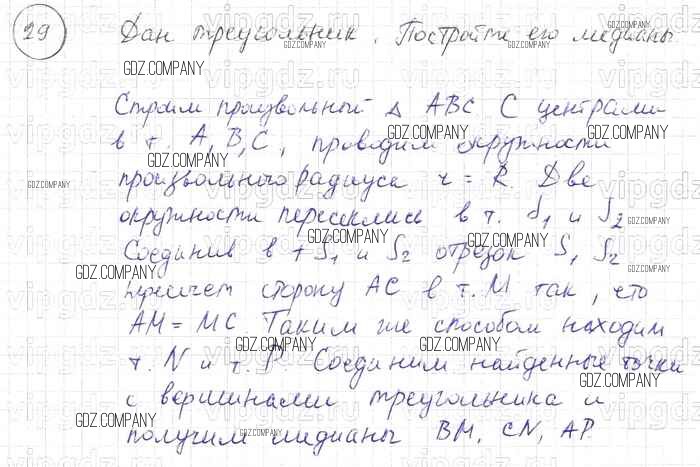 29 Дан треугольник. Постройте его медианы
Строим произвольный Δ ABC С центрами
в т. A, B, C, проводим окружности
произвольного радиуса r = R. Две
окружности пересеклись в т. S₁ и S₂
Соединив в т S₁ и S₂ отрезок S₁ S₂
пересечет сторону AC в т. M так, что
AM = MC Таким же способом находим
т. N и т. P. Соединим найденные точки
с вершинами треугольника и
получим медианы BM, CN, AP.
GDZ.COMPANY
vipgdz.ru